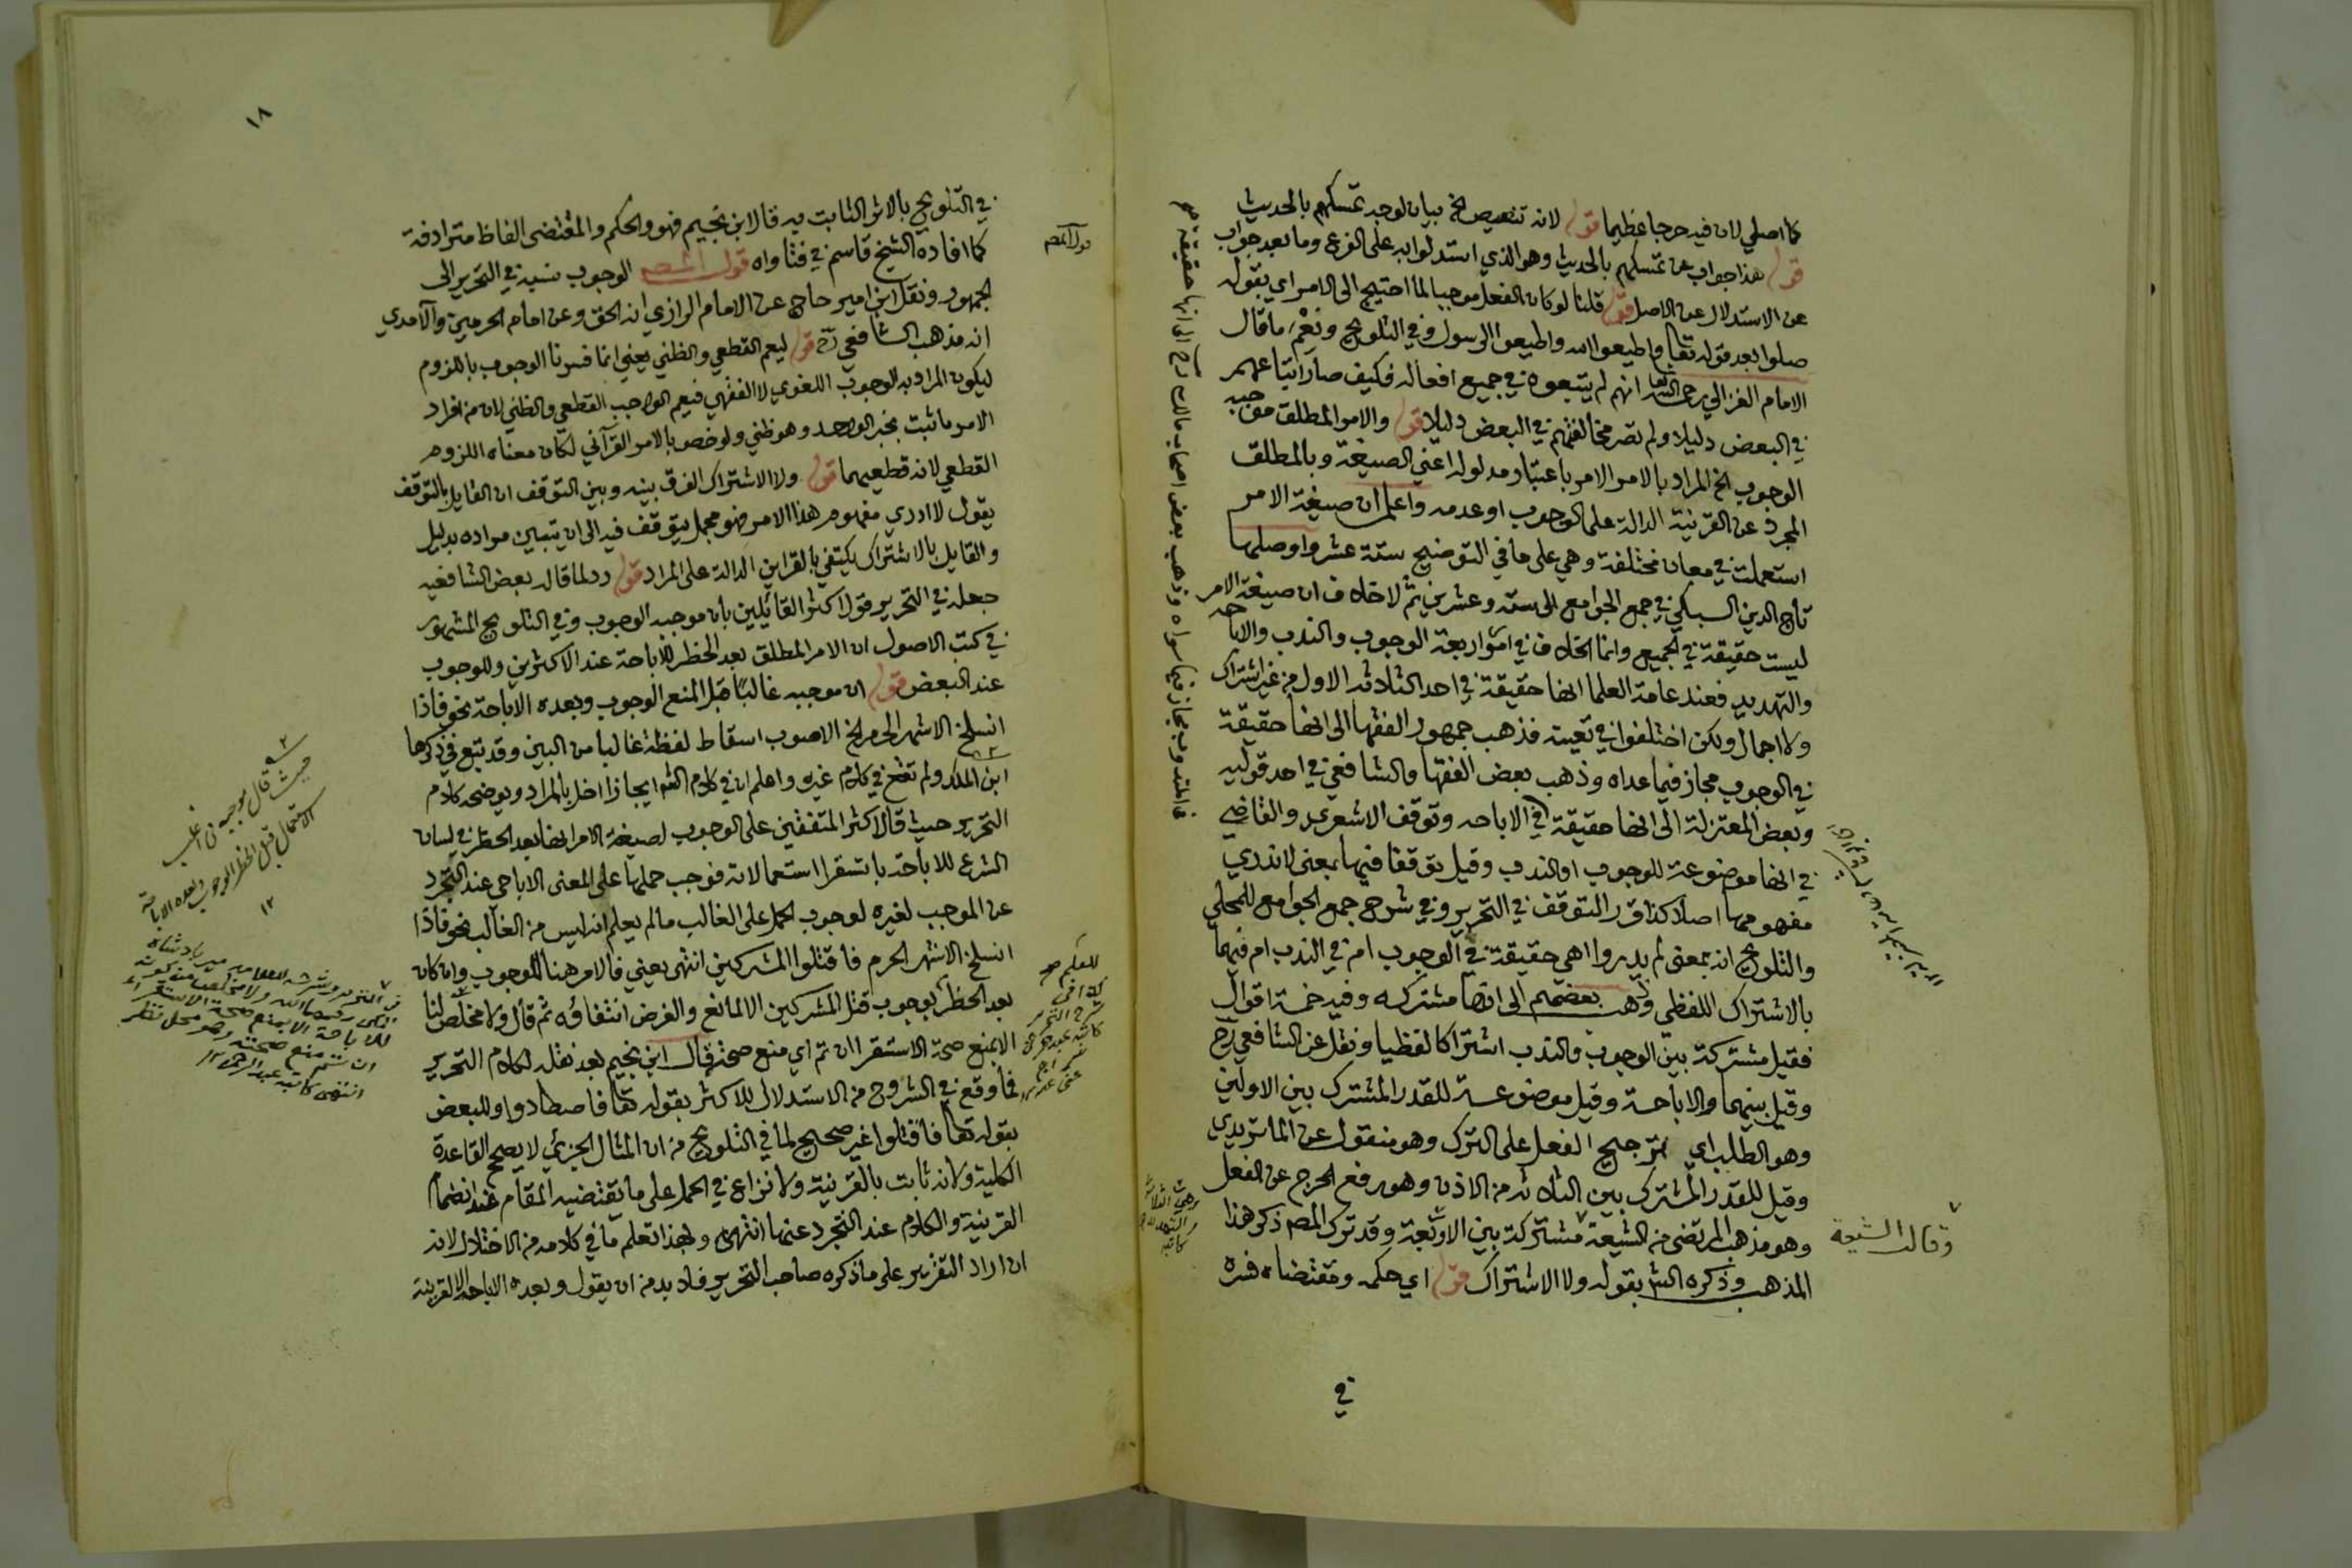 كما اصلي لان فيه حرجا عظيما قوله لانه تنصيص الخ بيان لوجه تمسكهم بالحديث
قوله هذا جواب عن تمسكهم بالحديث وهو الذي استدلوا به على الفرع وما بعد جواب
عن الاستدلال عن الاصل قوله قلنا لو كان الفعل موجبا لما احتيج الى الامر اي بقوله
صلوا بعد قوله تعالى واطيعوا الله واطيعوا الرسول وفي التلويح ونعم ما قال
الامام الغزالي رحمه الله تعالى انهم لم يتبعوه في جميع افعاله فكيف صار اتباعهم
في البعض دليلا ولم تصر مخالفتهم في البعض دليلا قوله والامر المطلق موجبه
الوجوب الخ المراد بالامر الامر باعتبار مدلوله اعني الصيغة وبالمطلق
المجرد عن القرينة الدالة على الوجوب او عدمه واعلم ان صيغة الامر
استعملت في معان مختلفة وهي على ما في التوضيح ستة عشر واوصلها
تاج الدين السبكي في جمع الجوامع الى ستة وعشرين ثم لا خلاف ان صيغة الامر
ليست حقيقة في الجميع وانما الخلاف في امور اربعة الوجوب والندب والاباحة
والتهديد فعند عامة العلما انها حقيقة في احد الثلاثه الاول من غير اشتراك
ولا اجمال ولكن اختلفوا في تعيينه فذهب جمهور الفقها الى انها حقيقة
في الوجوب مجاز فيما عداه وذهب بعض الفقها والشافعي في احد قوليه
وبعض المعتزلة الى انها حقيقة في الاباحه وتوقف الاشعري والقاضي
في انها موضوعة للوجوب او الندب وقيل توقفا فيها بمعنى لا ندري
مفهومها اصلا كذا قرر التوقف في التحرير وفي شرح جمع الجوامع للمحلي
والتلويح انه بمعنى لم يدروا اهي حقيقة في الوجوب ام في الندب ام فيهما
بالاشتراك اللفظي وذهب بعضهم الى انها مشتركه وفيه خمسة اقوال
فقيل مشتركة بين الوجوب والندب اشتراكا لفظيا ونقل عن الشافعي رح
وقيل بينهما والاباحة وقيل موضوعة للقدر المشترك بين الاولين
وهو الطلب اي ترجيح الفعل على الترك وهو منقول عن الماتريدي
وقيل للقدر المشترك بين الثلاثه من الاذن وهو رفع الحرج عن الفعل
وهو مذهب المرتضى من الشيعة مشتركة بين الاربعة وقد ترك المصم ذكر هذا
المذهب وذكره الش بقوله ولا الاشتراك قوله اي حكمه ومقتضاه فسره
في
وقالت الشيعة
فالمندوب مجاز فيما سواه وذهب بعض اصحاب مالك رح الى انها حقيقة
١٨
في التلويح بالاثر الثابت به قال ابن نجيم فهو والحكم والمقتضى الفاظ مترادفة
كما افاده الشيخ قاسم في فتاواه قوله الوجوب نسبه في التحرير الى
الجمهور ونقل ابن امير حاج عن الامام الرازي انه الحق وعن امام الحرمين والآمدي
انه مذهب الشافعي رح قوله ليعم القطعي والظني يعني انما فسرنا الوجوب باللزوم
ليكون المراد به الوجوب اللغوي لا الفقهي فيعم الواجب القطعي والظني لان من افراد
الامر ما ثبت بخبر الواحد وهو ظني ولو خص بالامر القرآني لكان معناه اللزوم
القطعي لانه قطعيهما قوله ولا الاشتراك الفرق بينه وبين التوقف ان القايل بالتوقف
يقول لا ادري مفهوم هذا الامر فهو مجمل يتوقف فيه الى ان يتبين مراده بدليل
والقايل بالاشتراك يكتفي بالقراين الدالة على المراد قوله رد لما قاله بعض الشافعيه
جعله في التحرير قول اكثر القائلين بان موجبه الوجوب وفي التلويح المشهور
في كتب الاصول ان الامر المطلق بعد الحظر للاباحة عند الاكثرين وللوجوب
عند البعض قوله ان موجبه غالبا قبل المنع الوجوب وبعده الاباحة نحو فاذا
انسلخ الاشهر الحرم الخ الاصوب اسقاط لفظة غالبا من البين وقد تبع في ذكرها
ابن الملك ولم تقع في كلام غيره واعلم ان في كلام الش ايجازا اخل بالمراد ويوضحه كلام
التحرير حيث قال اكثر المتفقين على الوجوب لصيغة الامر انها بعد الحظر في لسان
الشرع للاباحة باستقرا استعمالاته فوجب حملها على المعنى الاباحي عند التجرد
عن الموجب لغيره لوجوب الحمل على الغالب ما لم يعلم انه ليس من الغالب نحو فاذا
انسلخ الاشهر الحرم فاقتلوا المشركين انتهى يعني فالامر هنا للوجوب وان كان
بعد الحظر لوجوب قتل المشركين الا لمانع والغرض انتفاؤه ثم قال ولا مخلص لنا
الا بمنع صحة الاستقرا ان تم اي منع صحته قال ابن نجيم بعد نقله لكلام التحرير
فما وقع في الشروح من الاستدلال للاكثر بقوله تعالى فاصطادوا وللبعض
بقوله تعالى فاقتلوا غير صحيح لما في التلويح من ان المثال الجزئي لا يصحح القاعدة
الكلية ولانه ثابت بالقرينة ولا نزاع في الحمل على ما يقتضيه المقام عند انضمام
القرينة والكلام عند التجرد عنها انتهى وبهذا تعلم ما في كلامه من الاختلال لانه
ان اراد التقرير على ما ذكره صاحب التحرير فلا بد من ان يقول وبعده الاباحة الا لقرينة
حيث قال موجبه في اغلب
الاستعمال قبل الحظر الوجوب وبعده الاباحة
١٢
للاباحة الا بمنع صحة الاستقراء
ان تم منع صحته وهو محل نظر
انتهى كاتبه عبد الرحمن